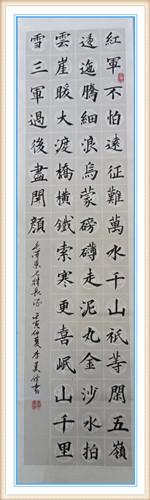 紅軍不怕遠征難萬水千山祇等閑五嶺
逶迤騰細浪烏蒙磅礴走泥丸金沙水拍
雲崖暖大渡橋橫鐵索寒更喜岷山千里
雪三軍過後盡開顏
毛澤東七律長征 壬寅仲夏李